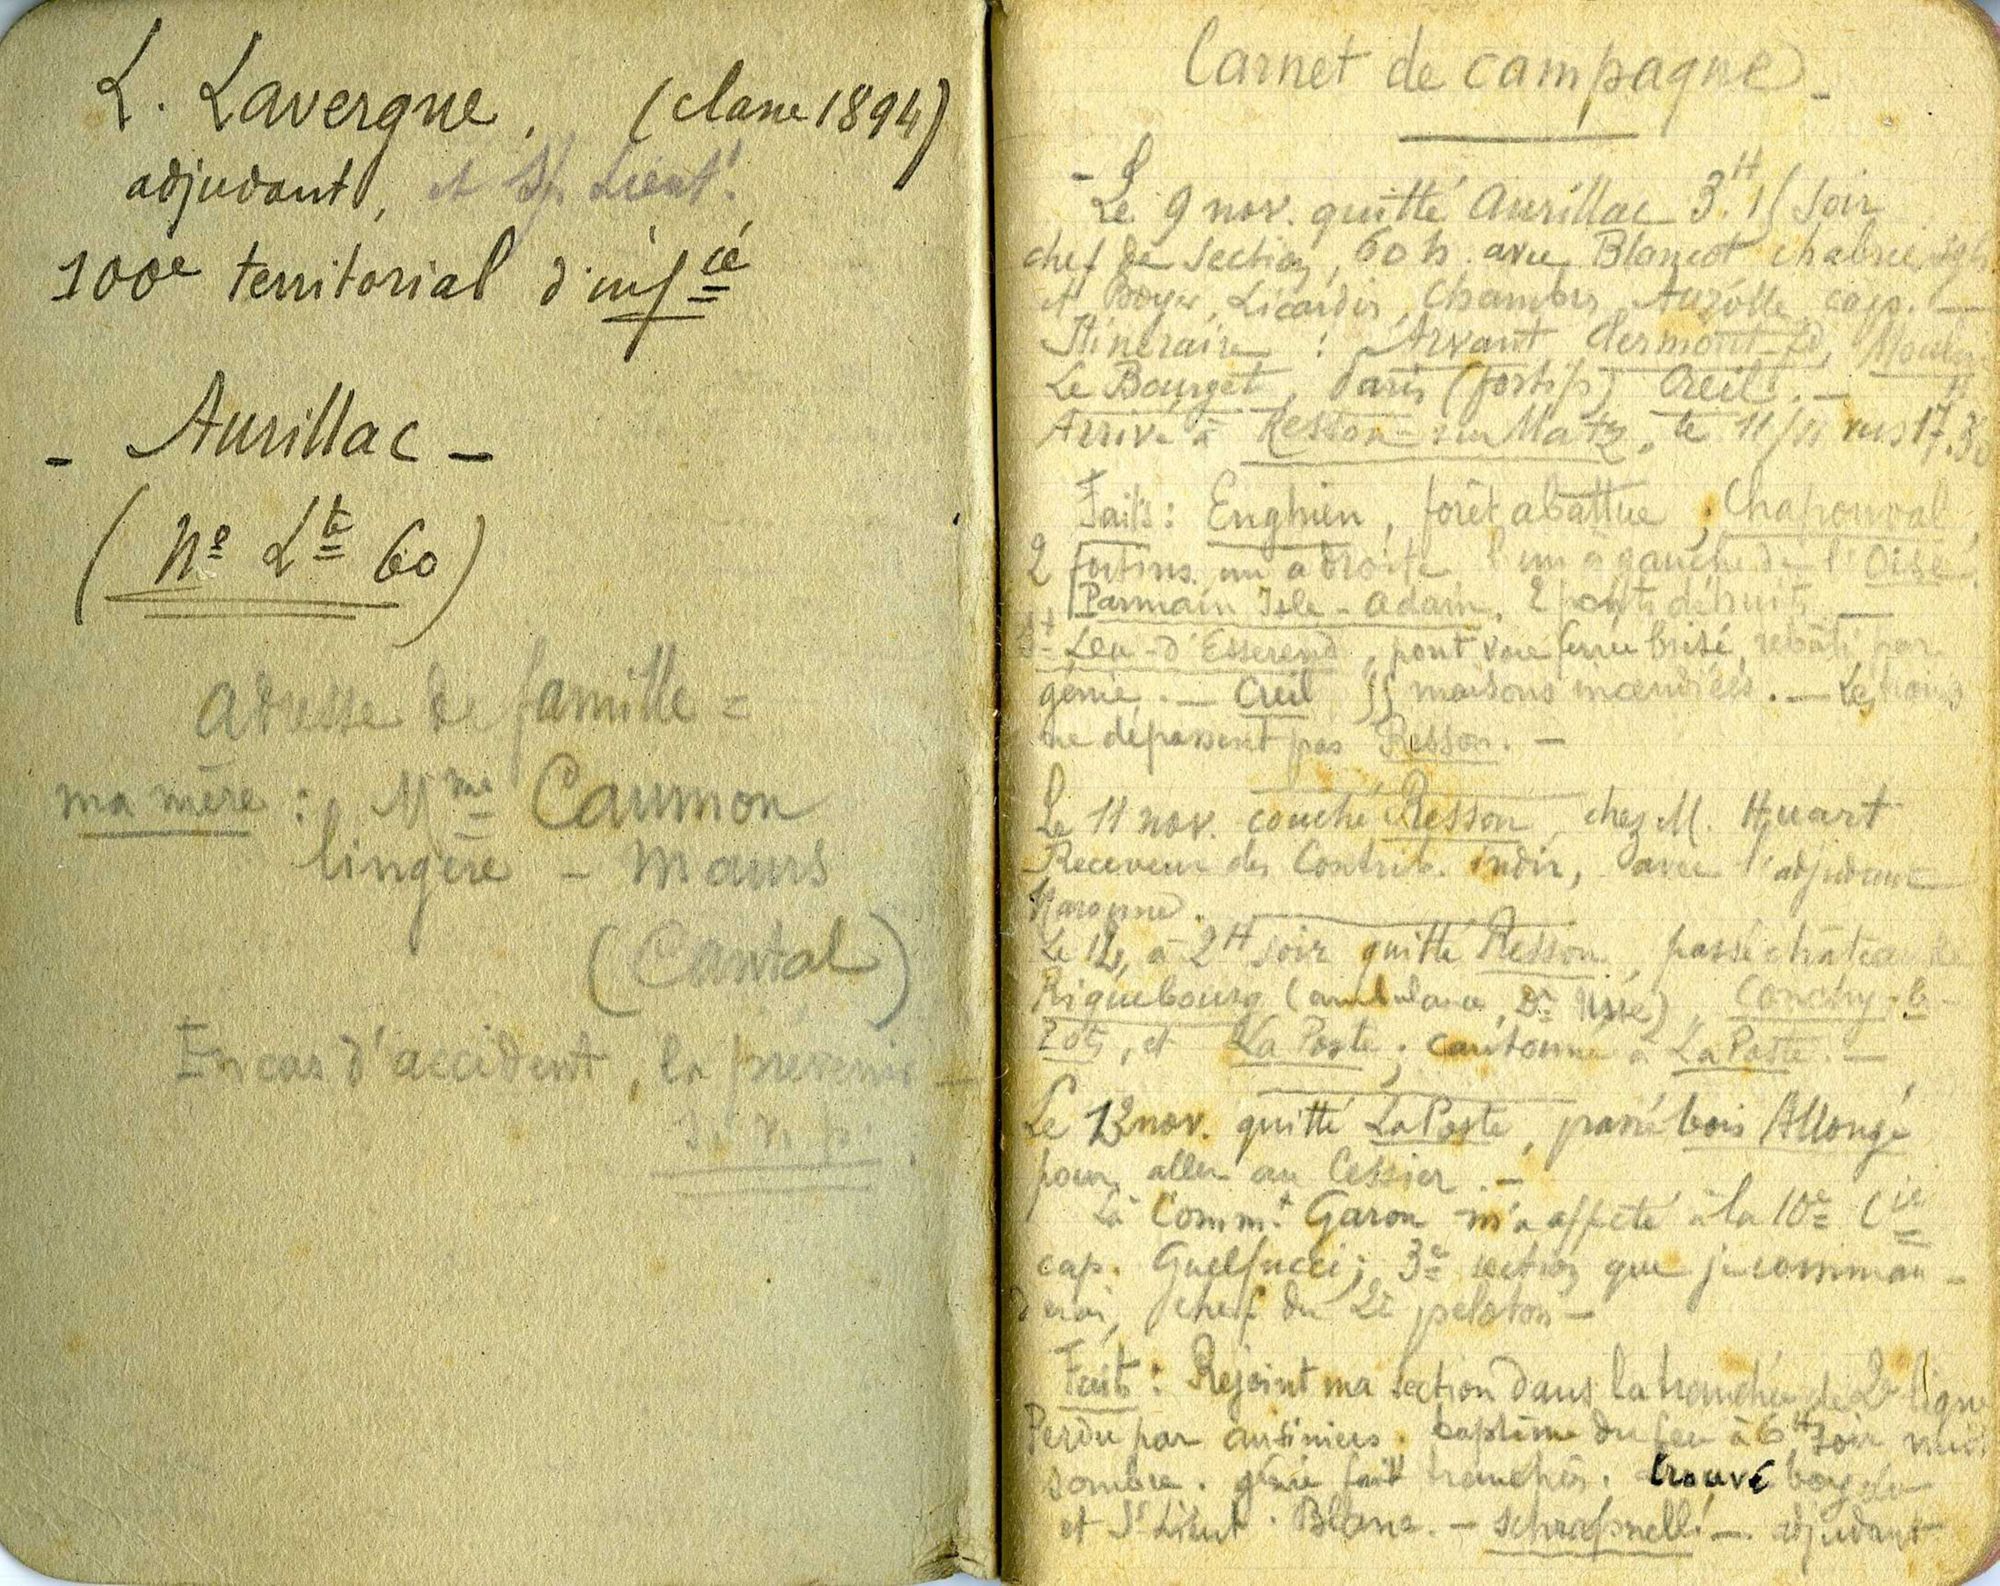 L. Lavergne, (classe 1894)
adjudant, et S/s Lieut.
100e territorial d'infie
- Aurillac -
(No Lt 60)
adresse de famille =
ma mère : Mme Caumon
lingère - Maurs
(Cantal)
En cas d'accident, la prévenir -
s. v. p.
Carnet de campagne -
- Le 9 nov. quitté Aurillac 3H.15 soir
chef de section, 60 h. avec Blancot
et Boyer, Licardis, Chambris, Auzolle, cap. -
Itinéraire : Arvant Clermont-Fd,
Le Bourget, Paris (fortifs) Creil. -
Arrivé à Resson-sur-Matz, le 11/11 vers 17H.30
Faits : Enghien, forêt abattue, Chaponval,
2 fortins un à droite l'un à gauche de l'Oise.
Parmain Isle-adam, 2 ponts détruits -
St Leu-d'Esserend, pont voie ferrée brisé, rebâti par
génie. - Creil 55 maisons incendiées. - Les trains
ne dépassent pas Resson. -
Le 11 nov. couché Resson, chez M. Huart
Receveur des Contrib. indir, avec l'adjudant
Naronne.
Le 12, à 2H soir quitté Resson, passé château de
Riquebourg (ambulance, Dr Ussé), Conchy-le-
Pots, et La Poste; cantonné à La Poste. -
Le 13 nov. quitté La Poste, passé bois Allongé
pour aller au Cessier. -
Là Commt Garon m'a affecté à la 10e Cie
cap. Guelfucci; 3e section que je comman-
derai, chef du 2e peloton -
Faits : Rejoint ma section dans la tranchée de 2e ligne
Perdu par cuisiniers. baptême du feu à 6H soir nuit
sombre. génie fait tranchées. trouvé
et S/Lieut. Blanc. - schrapnell - adjudant